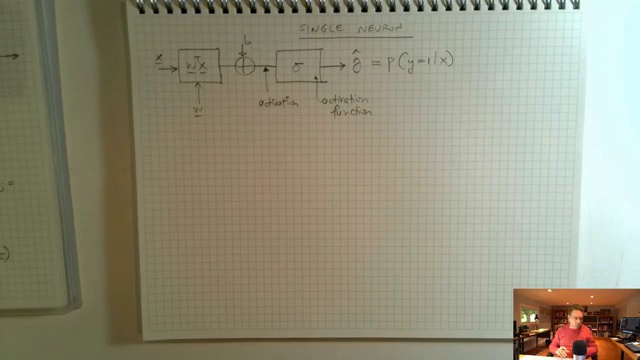 SINGLE NEURON
b
x wᵀx σ ŷ = p(y=1|x)
w
activation
activation function